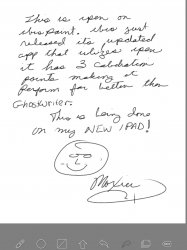 This is upen on
ibispaint, ibis just
released its updated
app that utilizes upen
it has 3 Calibration
points making it
perform far better than
Ghostwriter.
This is being done
on my NEW IPAD!